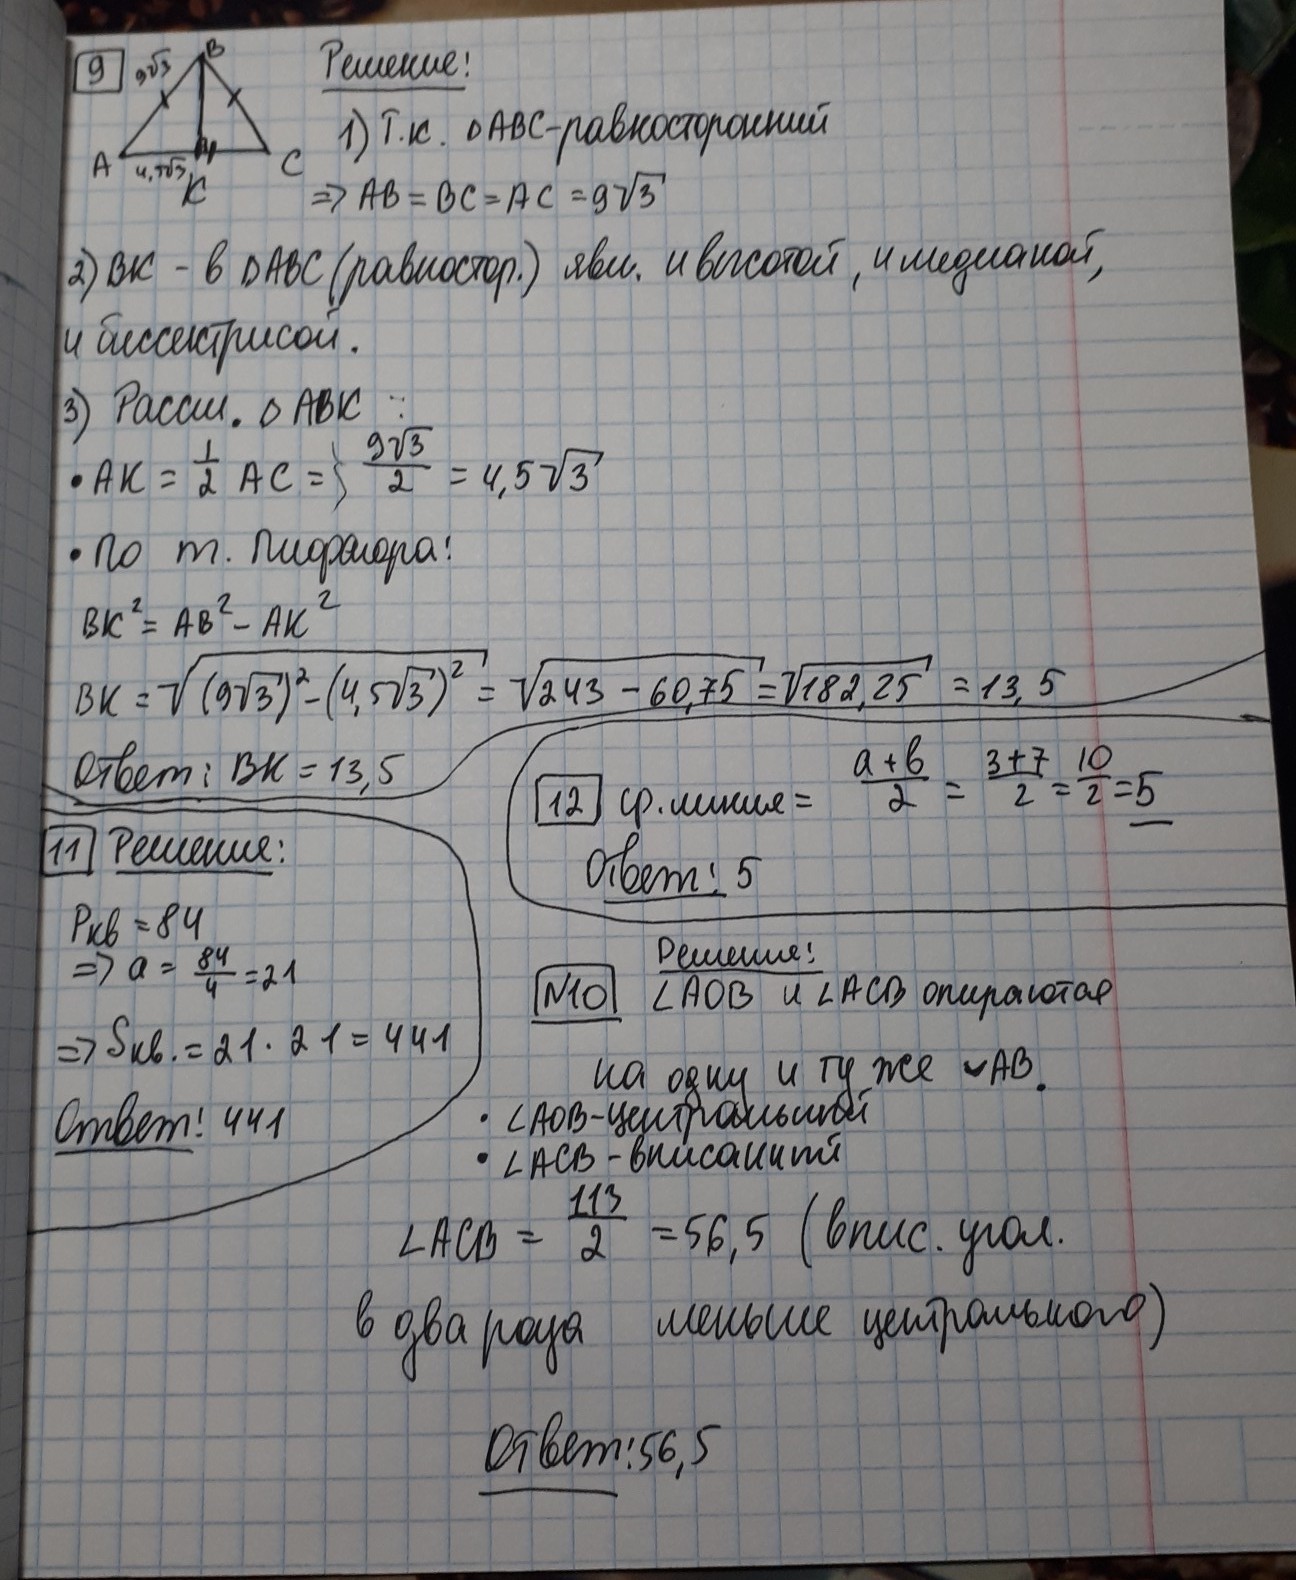 9
B
9√3
A
4,5√3
K
C
Решение:
1) Т.к. △ABC-равносторонний
=> AB = BC = AC = 9√3
2) BK - в △ABC (равностор.) явл. и высотой, и медианой,
и биссектрисой.
3) Рассм. △ABK :
• AK = 1/2 AC = 9√3/2 = 4,5√3
• По т. Пифагора:
BK² = AB² - AK²
BK = √((9√3)² - (4,5√3)²) = √(243 - 60,75) = √182,25 = 13,5
Ответ: BK = 13,5
12 ср. линия = (a+b)/2 = (3+7)/2 = 10/2 = 5
Ответ: 5
11 Решение:
Pкв = 84
=> a = 84/4 = 21
=> Sкв. = 21 · 21 = 441
Ответ: 441
Решение:
N10 ∠AOB и ∠ACB опираются
на одну и ту же ◡AB.
• ∠AOB-центральный
• ∠ACB-вписанный
∠ACB = 113/2 = 56,5 (впис. угол.
в два раза меньше центрального)
Ответ: 56,5